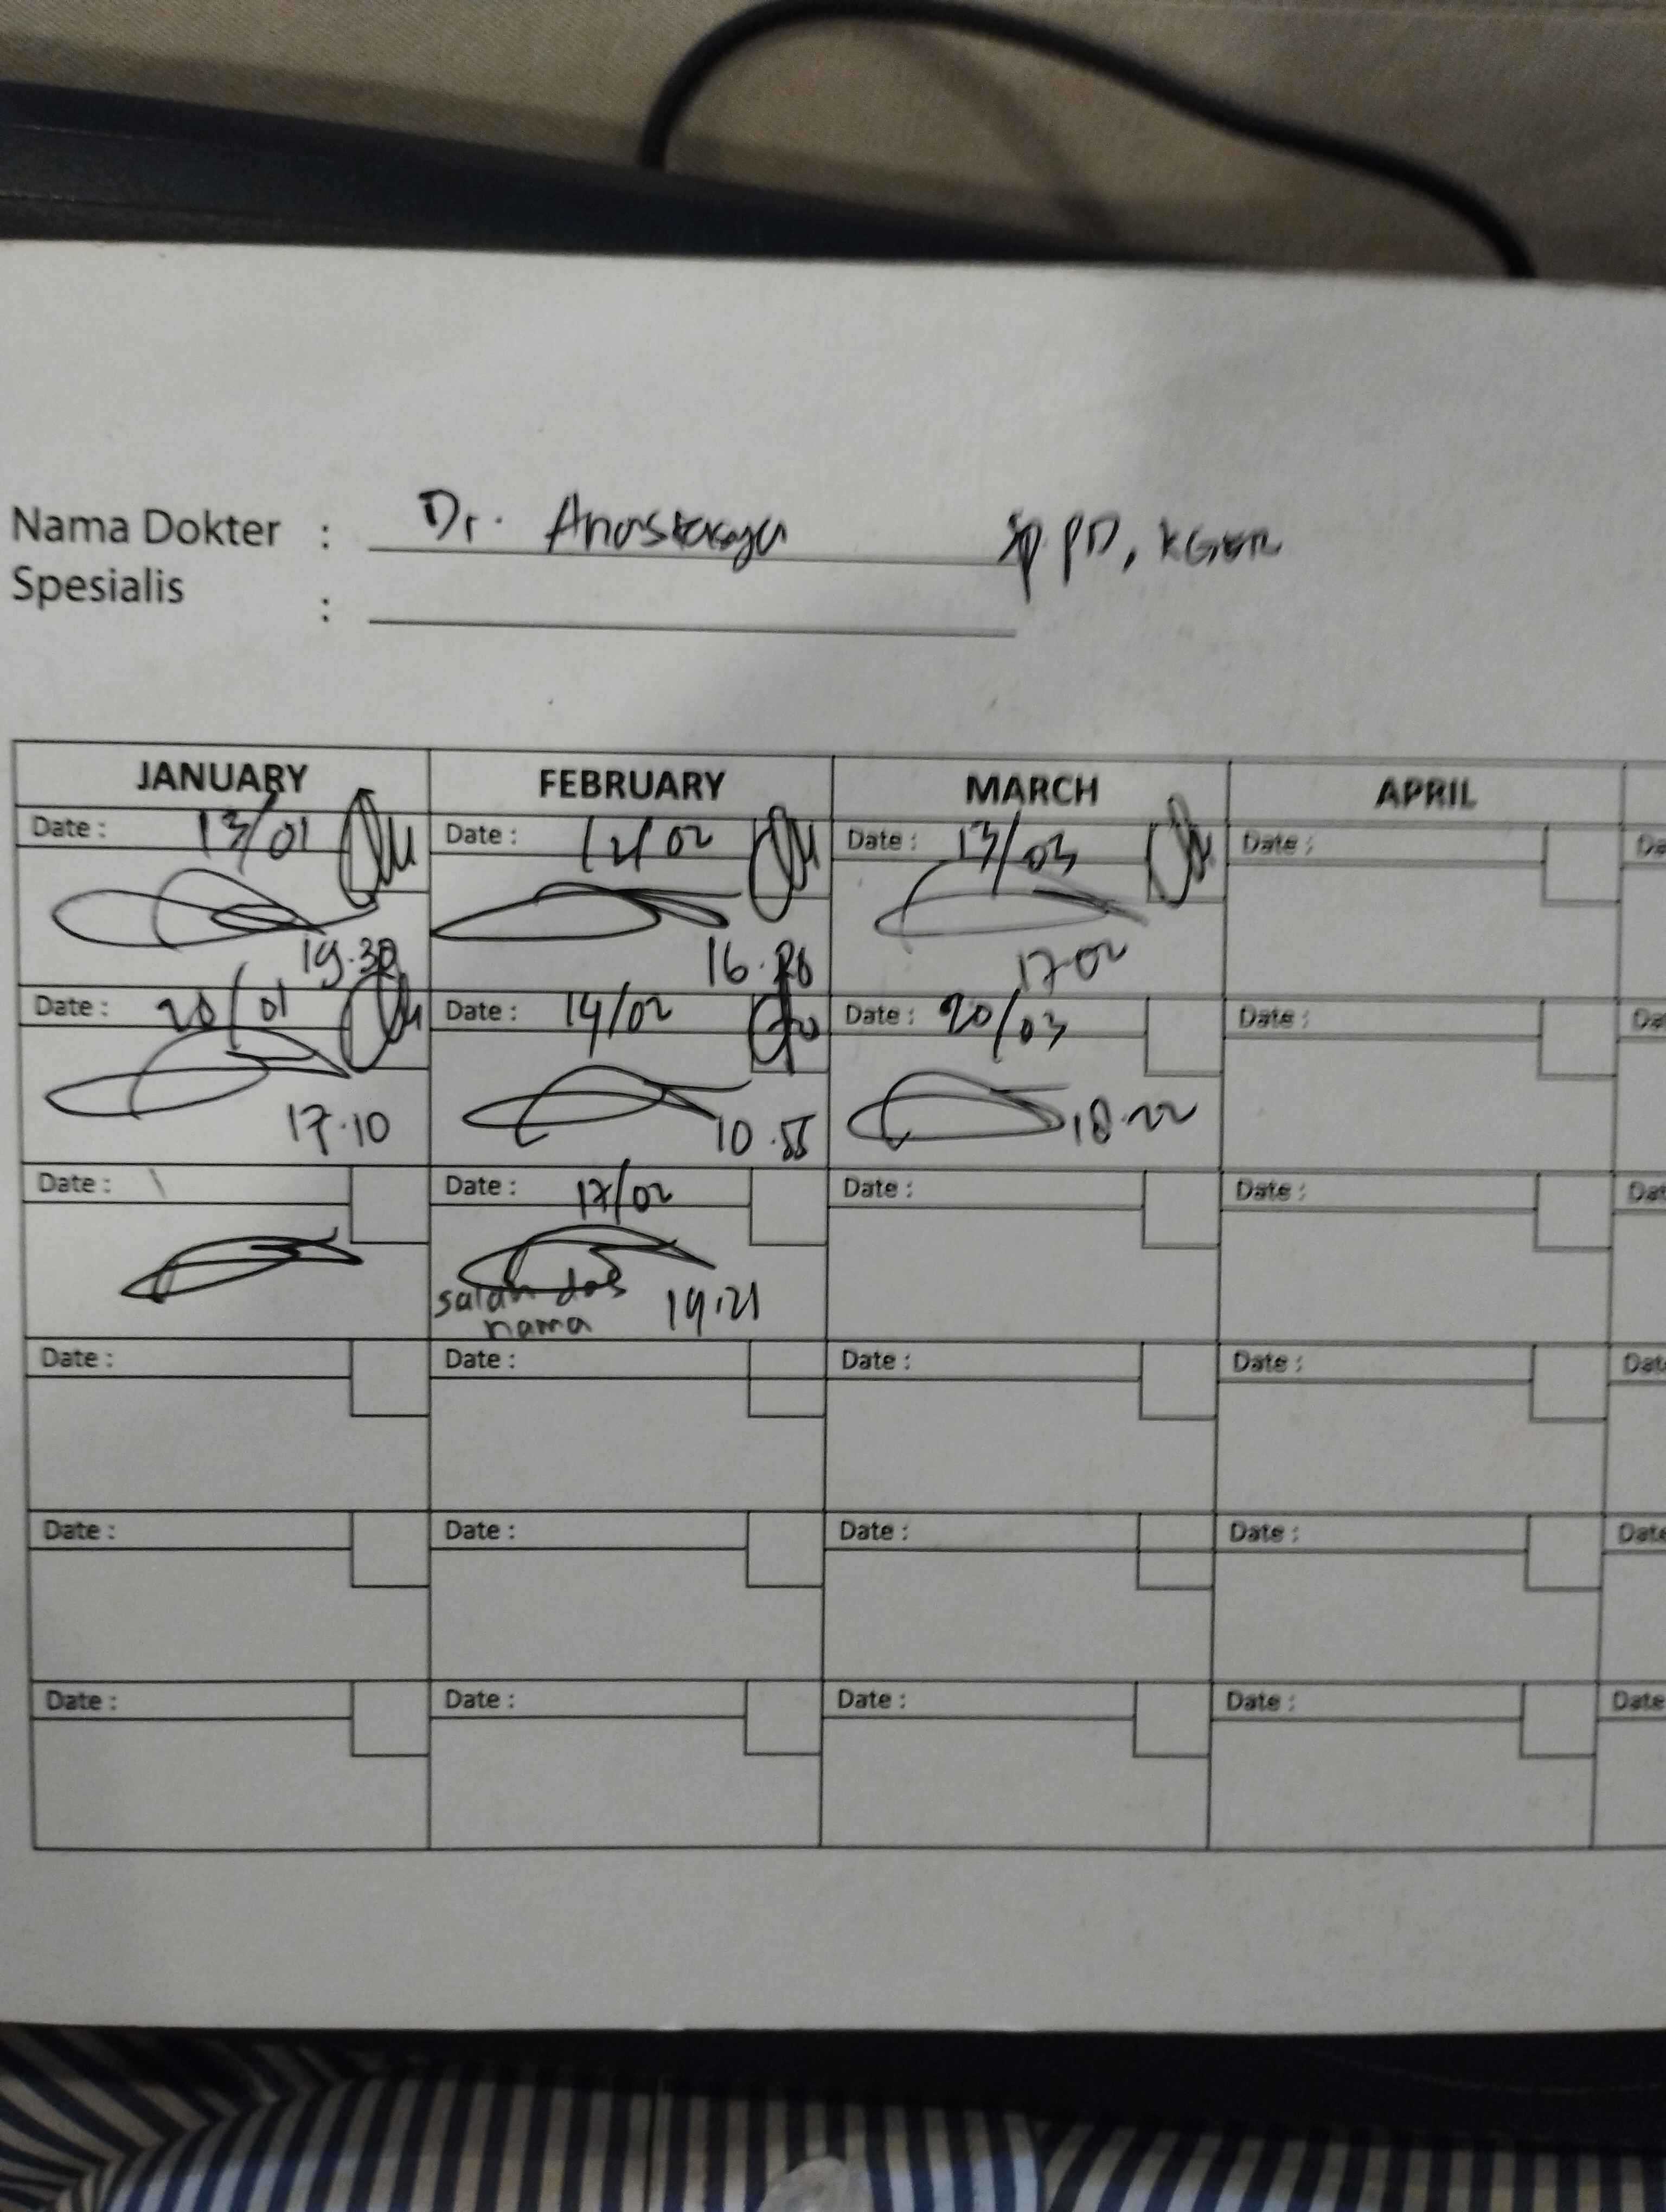 Nama Dokter : Dr. Anastasya Sp.PD, KGER
Spesialis :
JANUARY FEBRUARY MARCH APRIL
Date : 13/01 Date : 12/02 Date : 13/03 Date :
19.30 16. 17.02
Date : 20/01 Date : 14/02 Date : 20/03 Date :
17.10 10.55 18.22
Date : Date : 17/02 Date : Date :
salah dos
nama 19.21
Date : Date : Date : Date :
Date : Date : Date : Date :
Date : Date : Date : Date :